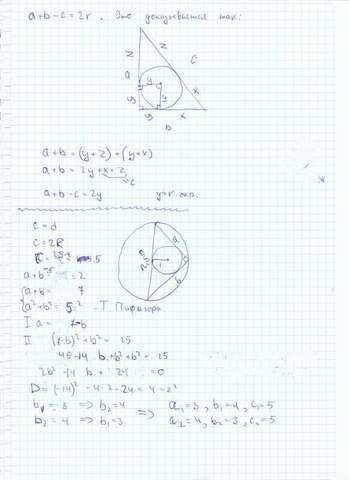 a+b-c=2r. Это доказывается так:
z
z
a
c
y
y
y
x
x
b
a+b=(y+z)+(y+x)
a+b=2y+x+z
c
a+b-c=2y
y=r
c=d
c=2R
a
b
5
a+b =2
a+b= 7
a²+b²=5² - Т. Пифагора
I a= 7-b
II (7-b)²+b²= 25
49-14 b+b²+b²= 25
2b²-14 b+ 24 =0
D=(-14)²-4·2·24=4=2²
b₁=3 ⇒ b₂=4
b₂=4 ⇒ b₁=3
⇒
a₁=3, b₁=4, c₁=5
a₂=4, b₂=3, c₂=5